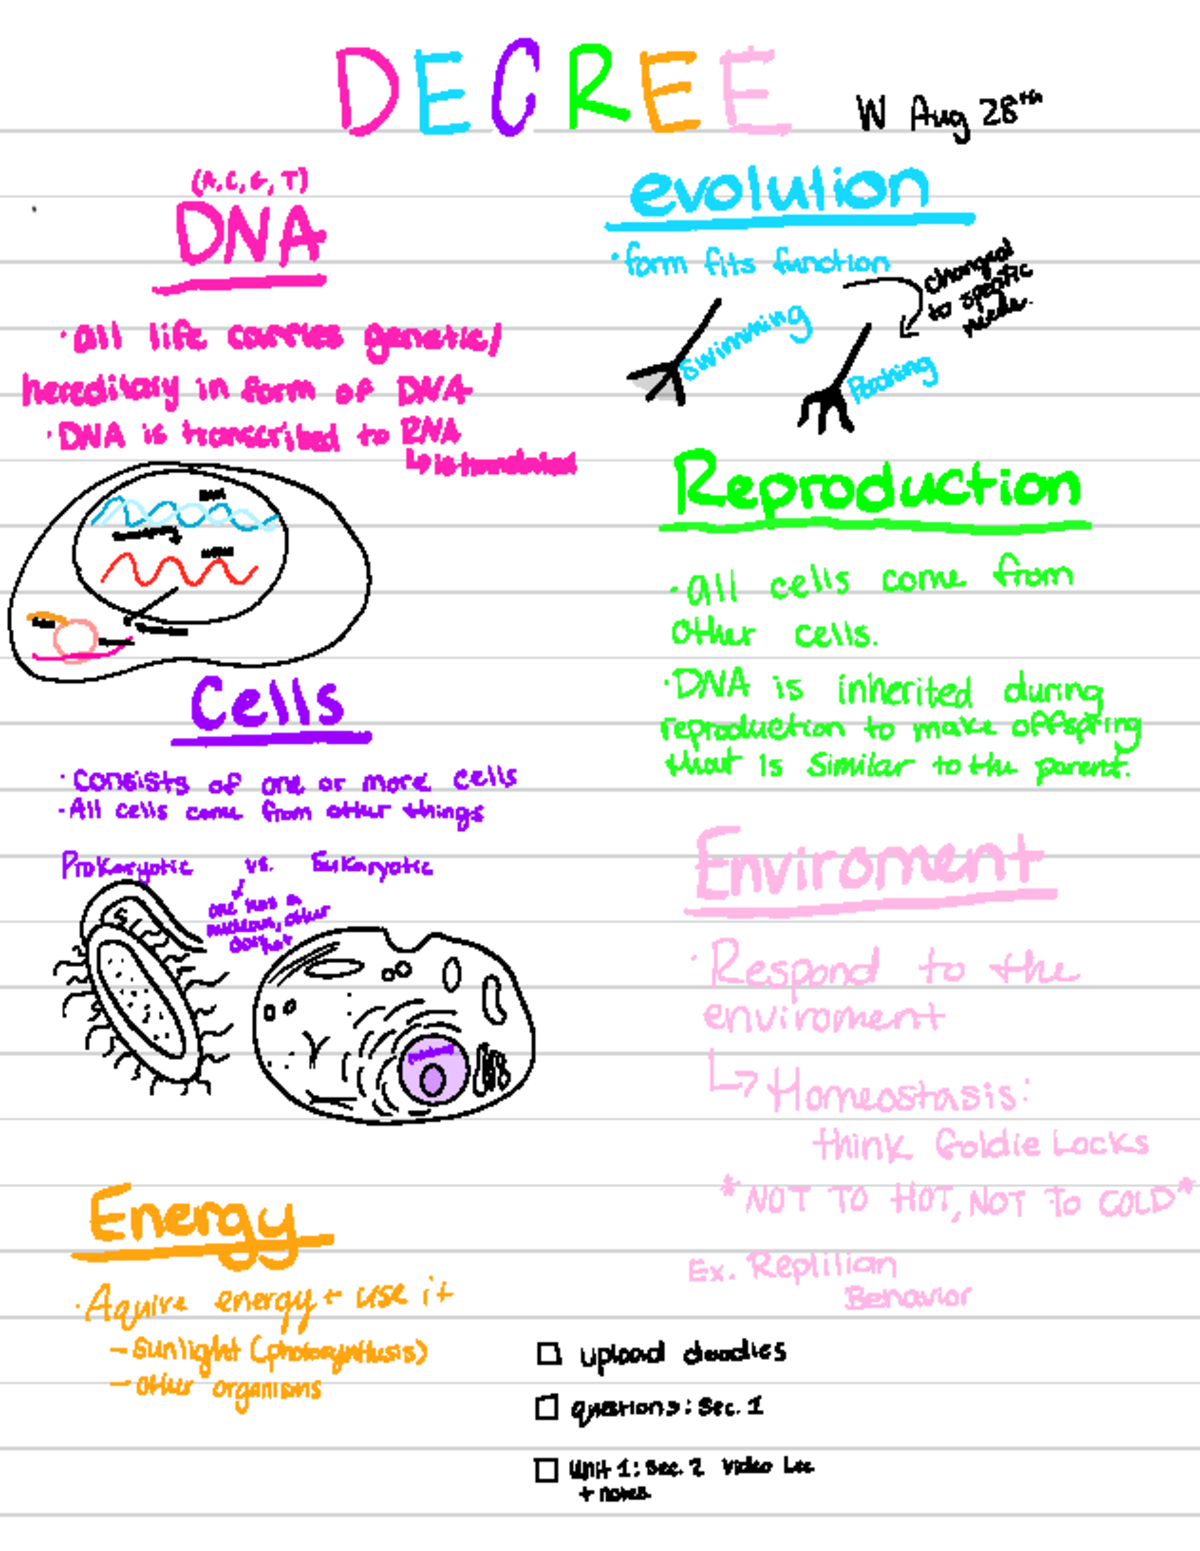 DECREE
W Aug 28th
(A, C, G, T)
DNA
· all life carries genetic/
hereditary in form of DNA
· DNA is transcribed to RNA
↳ is translated
DNA
Cells
· consists of one or more cells
- All cells come from other things
Prokaryotic vs. Eukaryotic
one has a
nucleous, other
doesnt
Energy
· Aquire energy + use it
- sunlight (photosynthesis)
- other organisms
evolution
· form fits function
changed
to specific
needs.
swimming
Perching
Reproduction
· all cells come from
other cells.
· DNA is inherited during
reproduction to make offspring
that is similar to the parent.
Enviroment
· Respond to the
enviroment
↳ Homeostasis:
think Goldie Locks
*NOT TO HOT, NOT TO COLD*
Ex. Reptilian
Behavior
☐ upload doodles
☐ questions: Sec. 1
☐ Unit 1: Sec. 2 Video Lec
+ notes